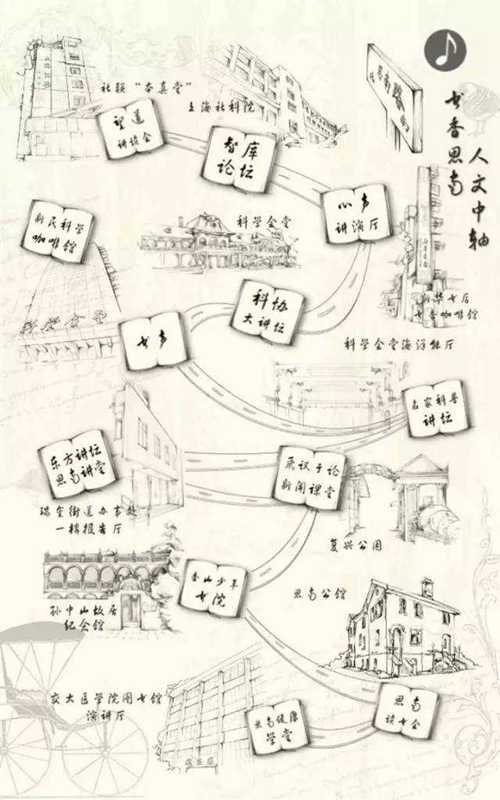 社联“本真堂”
上海社科院
望道
讲读会
智库
论坛
书香思南
人文中轴
心声
讲演厅
新民科学
咖啡馆
科学会堂
新华书店
书香咖啡馆
科协
大讲坛
书声
科学会堂
科学会堂海洋能厅
名家科普
讲坛
东方讲坛
思南讲堂
瑞金街道办事处
一楼报告厅
燕议于论
新闻课堂
复兴公园
香山少年
书院
思南公馆
孙中山故居
纪念馆
交大医学院图书馆
演讲厅
思南健康
学堂
思南
读书会